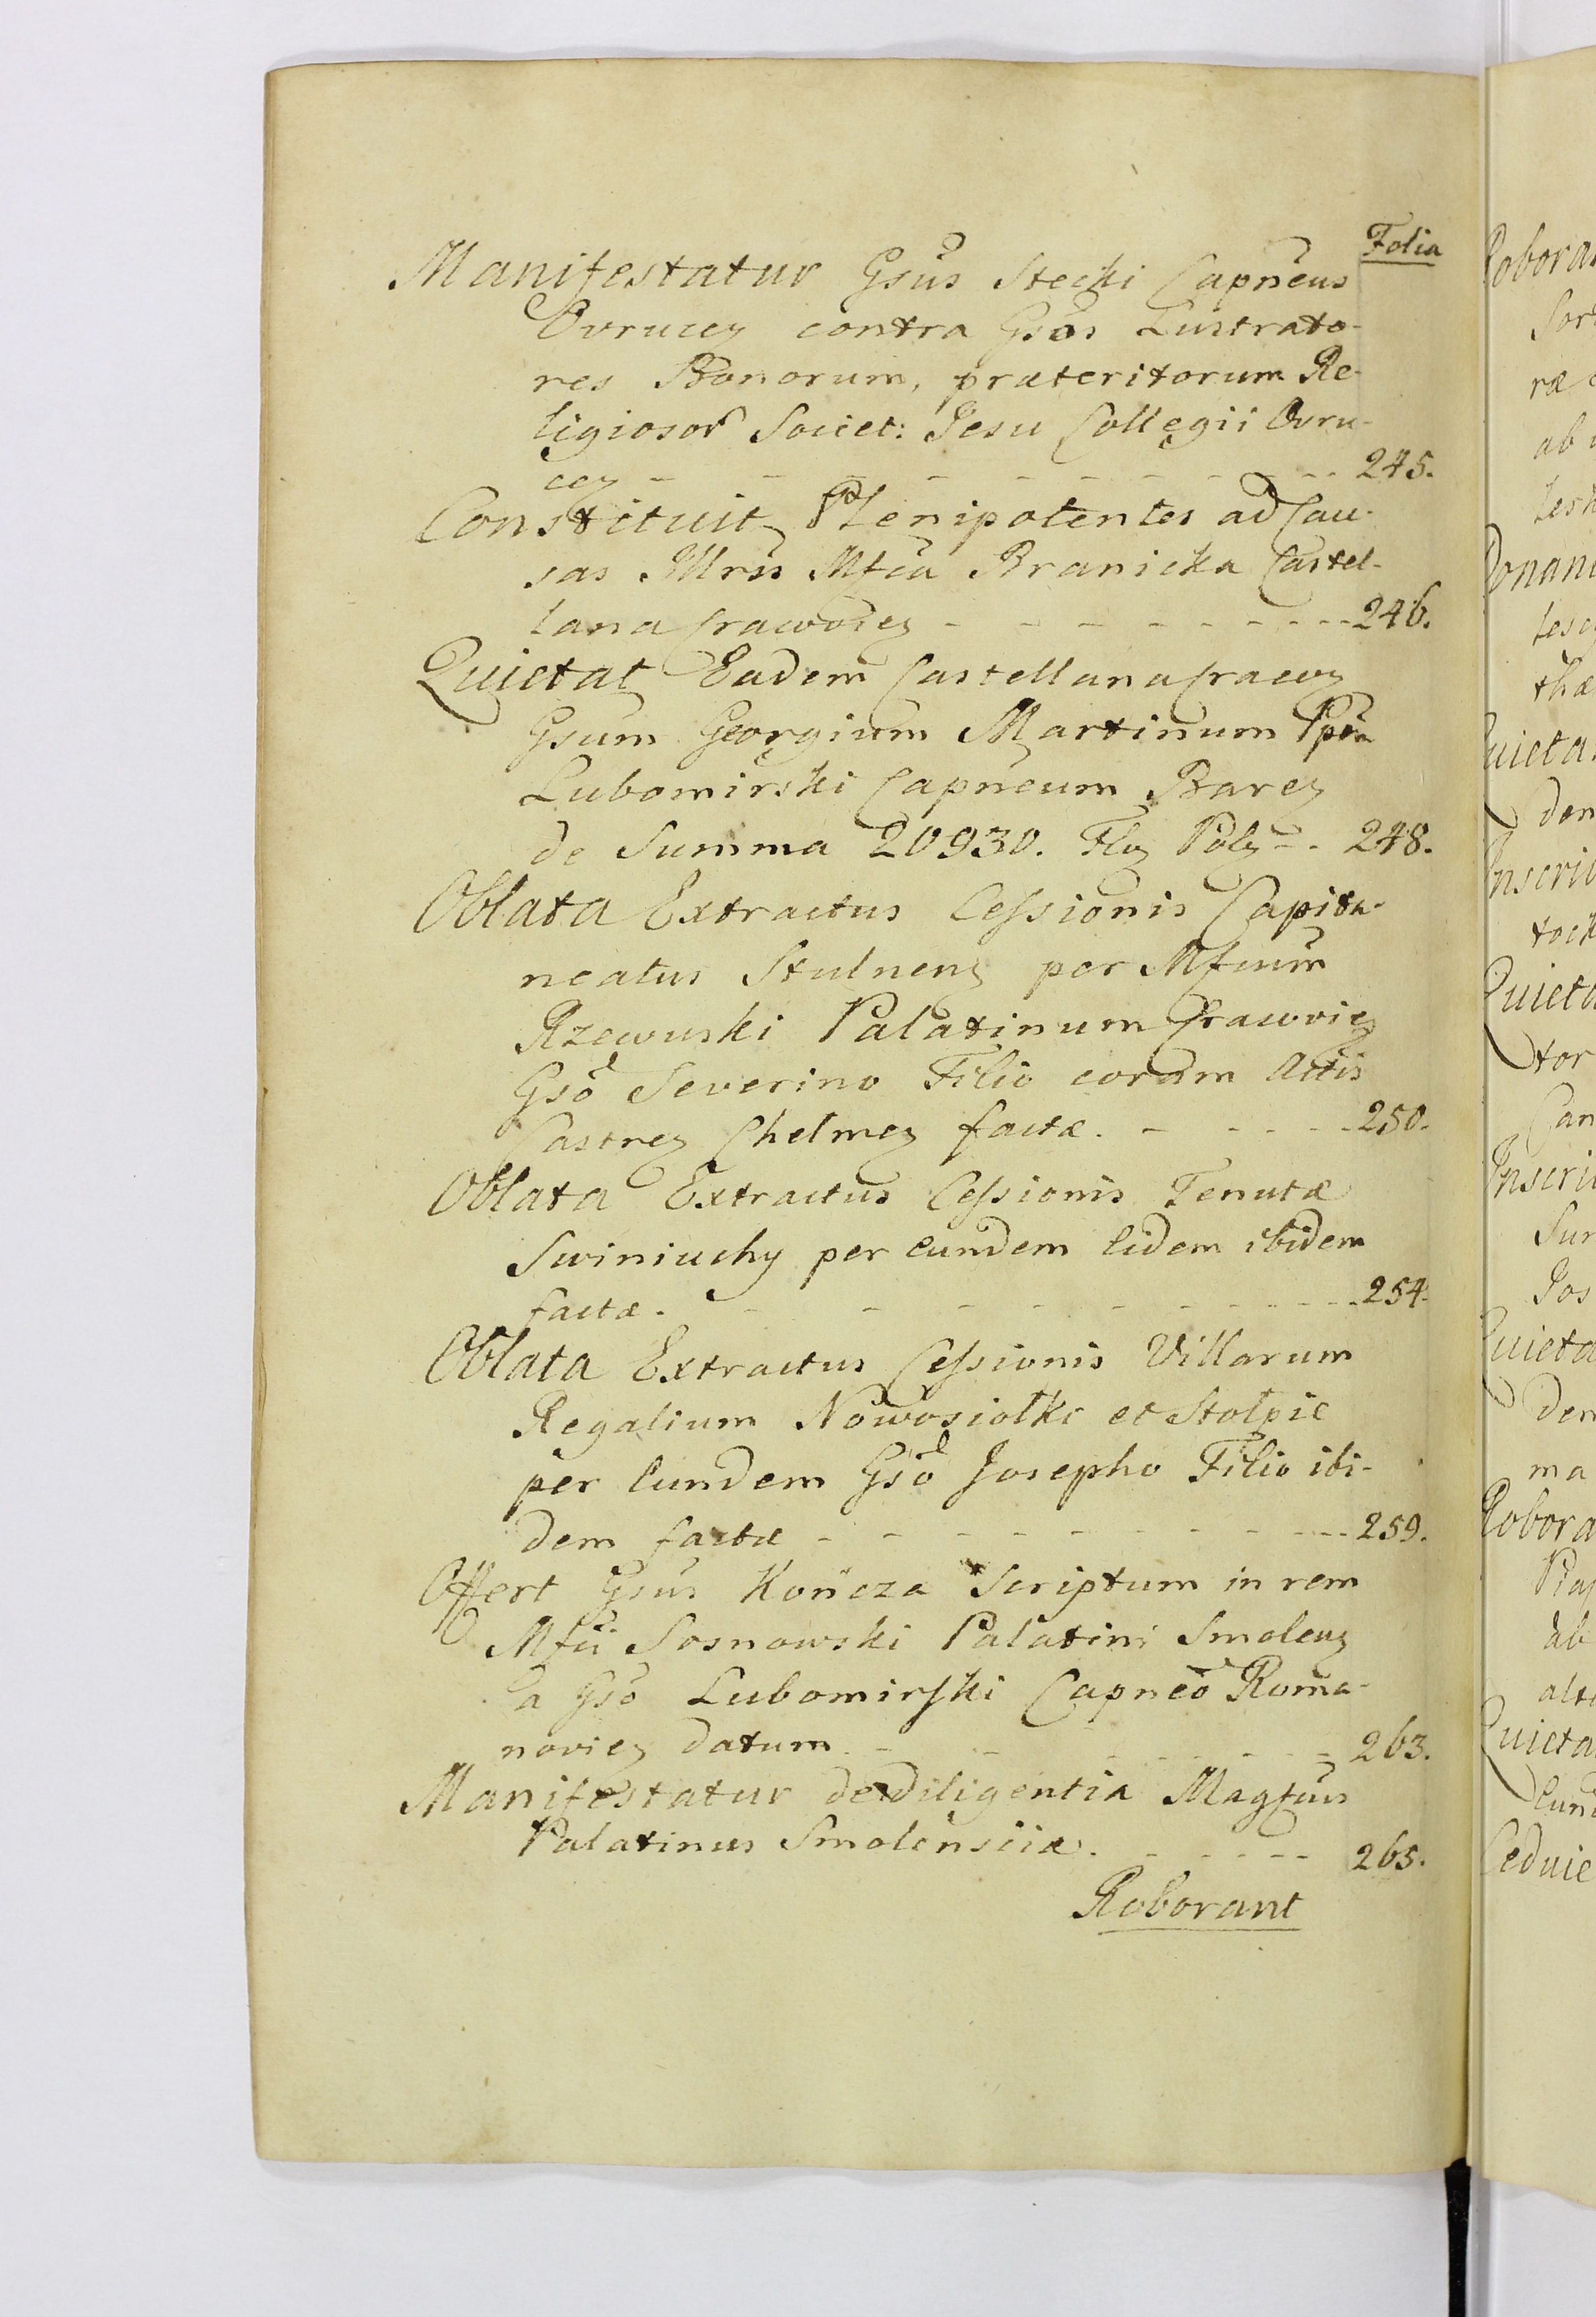 Folia
Manifestatur Gsus Stecki Capneus
Ovrucen contra Gsos Lustrato-
res Bonorum, præteritorum Re-
ligiosor Societ: Jesu Collegii Ovru-
cen - - - - - - - - - 245.
Constituit Plenipotentes ad Cau-
sas Illris Mfca Branicka Castel-
lana Cracovien - - - - - - - - 246.
Quietat Eadem Castellana Cracov
Gsum Georgium Martinum Ppem
Lubomirski Capneum Baren
de Summa 20930. Flor Pol - - 248.
Oblata Extractus Cessionis Capita-
neatus Stulnens per Mfcum
Rzewuski Palatinum Cracovien
Gso Severino Filio coram Actis
Castren Chelmen factæ. - - - - - 250.
Oblata Extractus Cessionis Tenutæ
Swiniuchy per eundem eidem ibidem
factæ. - - - - - - - - - 254.
Oblata Extractus Cessionis Villarum
Regalium Nowosiołki et Stolpie
per eundem Gso Josepho Filio ibi-
dem factæ - - - - - - - - - 259.
Offert Gsus Kończa Scriptum in rem
Mfci Sosnowski Palatini Smolens
a Gso Lubomirski Capneo Roma-
novien datum. - - - - - - 263.
Manifestatur de diligentia Magfcus
Palatinus Smolensciæ. - - - - - 265.
Roborant